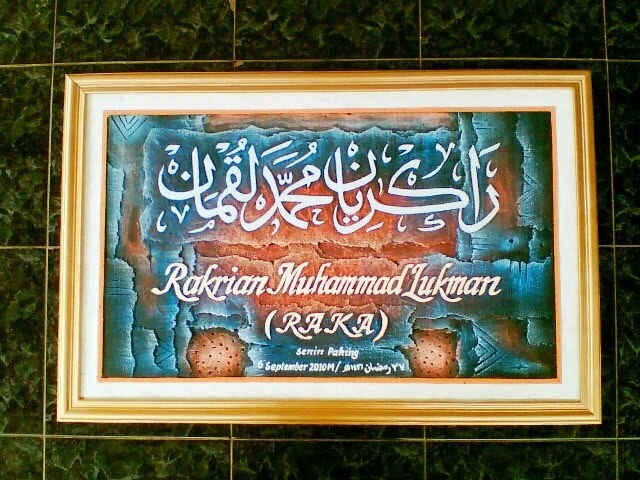 رَاكرِيَان مُحَمَّد لُقْمَان
Rakrian Muhammad Lukman
(RAKA)
senin Pahing
6 September 2010M / ٢٧ رمضان